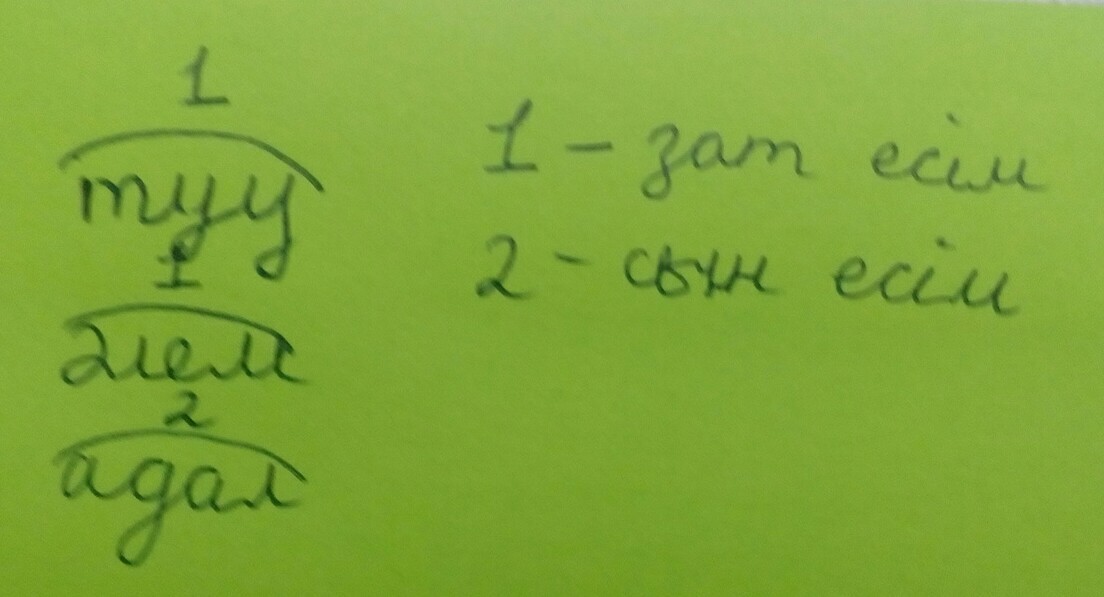 1
туу
1
әлем
2
адал
1 - зат есім
2 - сын есім